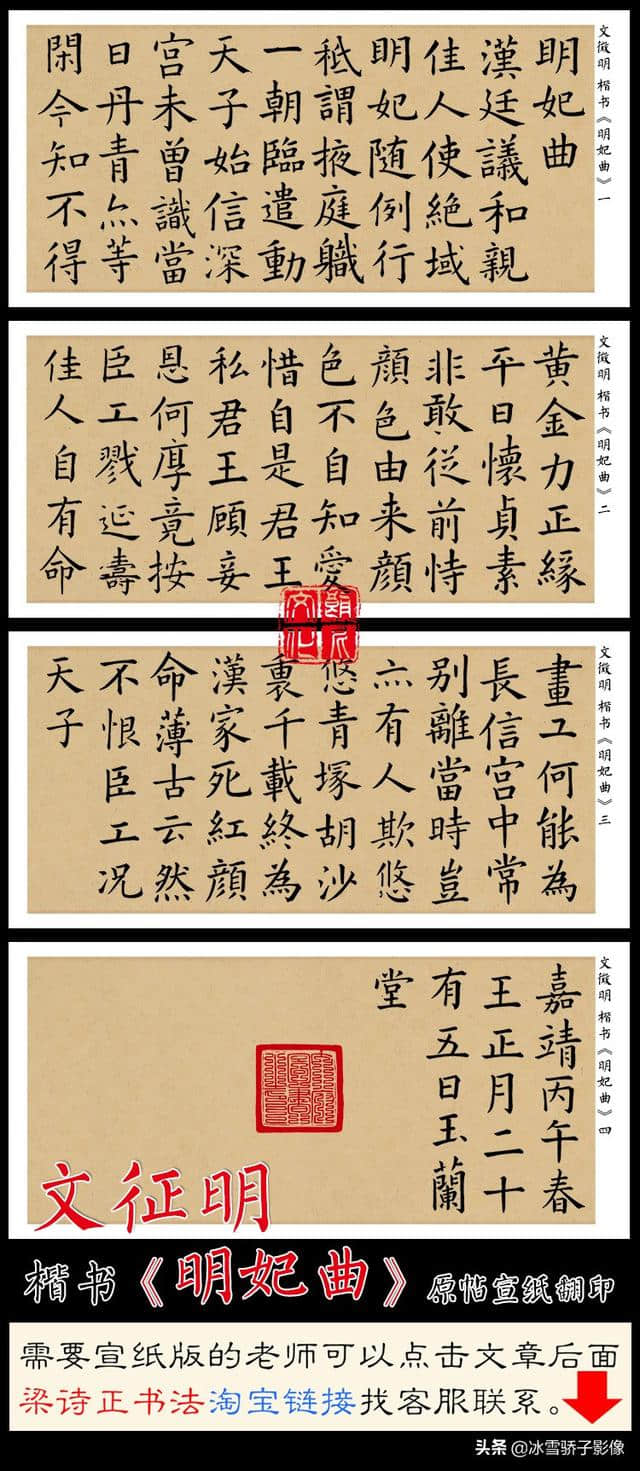 文徵明 楷书《明妃曲》一
明妃曲
漢廷議和親
佳人使絕域
明妃随例行
秪謂掖庭職
一朝臨遣動
天子始信深
宮未曾識當
日丹青亦等
閑今知不得
文徵明 楷书《明妃曲》二
黄金力正緣
平日懷貞素
非敢從前恃
顏色由来顏
色不自知愛
惜自是君王
私君王顧妾
恩何厚竟按
臣工戮延壽
佳人自有命
文徵明 楷书《明妃曲》三
畫工何能為
長信宮中常
别離當時豈
亦有人欺悠
悠青塚胡沙
裏千載終為
漢家死紅顏
命薄古云然
不恨臣工况
天子
文徵明 楷书《明妃曲》四
嘉靖丙午春
王正月二十
有五日玉蘭
堂
文征明
楷书《明妃曲》原帖宣纸翻印
需要宣纸版的老师可以点击文章后面
梁诗正书法淘宝链接找客服联系。
头条@冰雪骄子影像